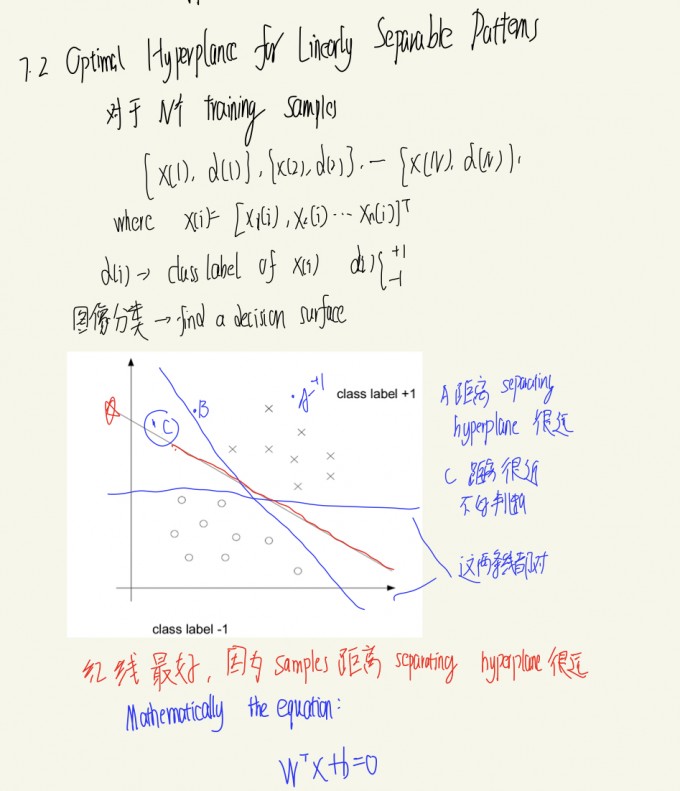 7.2 Optimal Hyperplane for Linearly Separable Patterns
对于 N个 training samples
[x(1), d(1)], {x(2), d(2)}, — {x(N), d(N)},
where x(i)= [x1(i), x2(i) ··· xn(i)]T
d(i) → class label of x(i) d(i) { +1 -1
图像分类 → find a decision surface
A +1
class label +1
B
C
class label -1
A 距离 separating
hyperplane 很远
C 距离很近
不好判断
这两条线都对
红线最好, 因为 samples 距离 separating hyperplane 很远
Mathematically the equation:
wTx+b=0